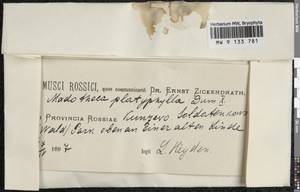 Herbarium MW, Bryophyta
MW 9 133 781
MUSCI ROSSICI, quos communicavit DR. ERNST ZICKENDRATH.
Madotheca platyphylla Dum.
PROVINCIA ROSSIAE Cunzevo Soldatenkows
Wald/Park eben an einer alten Linde
189 legit L. Heyden.